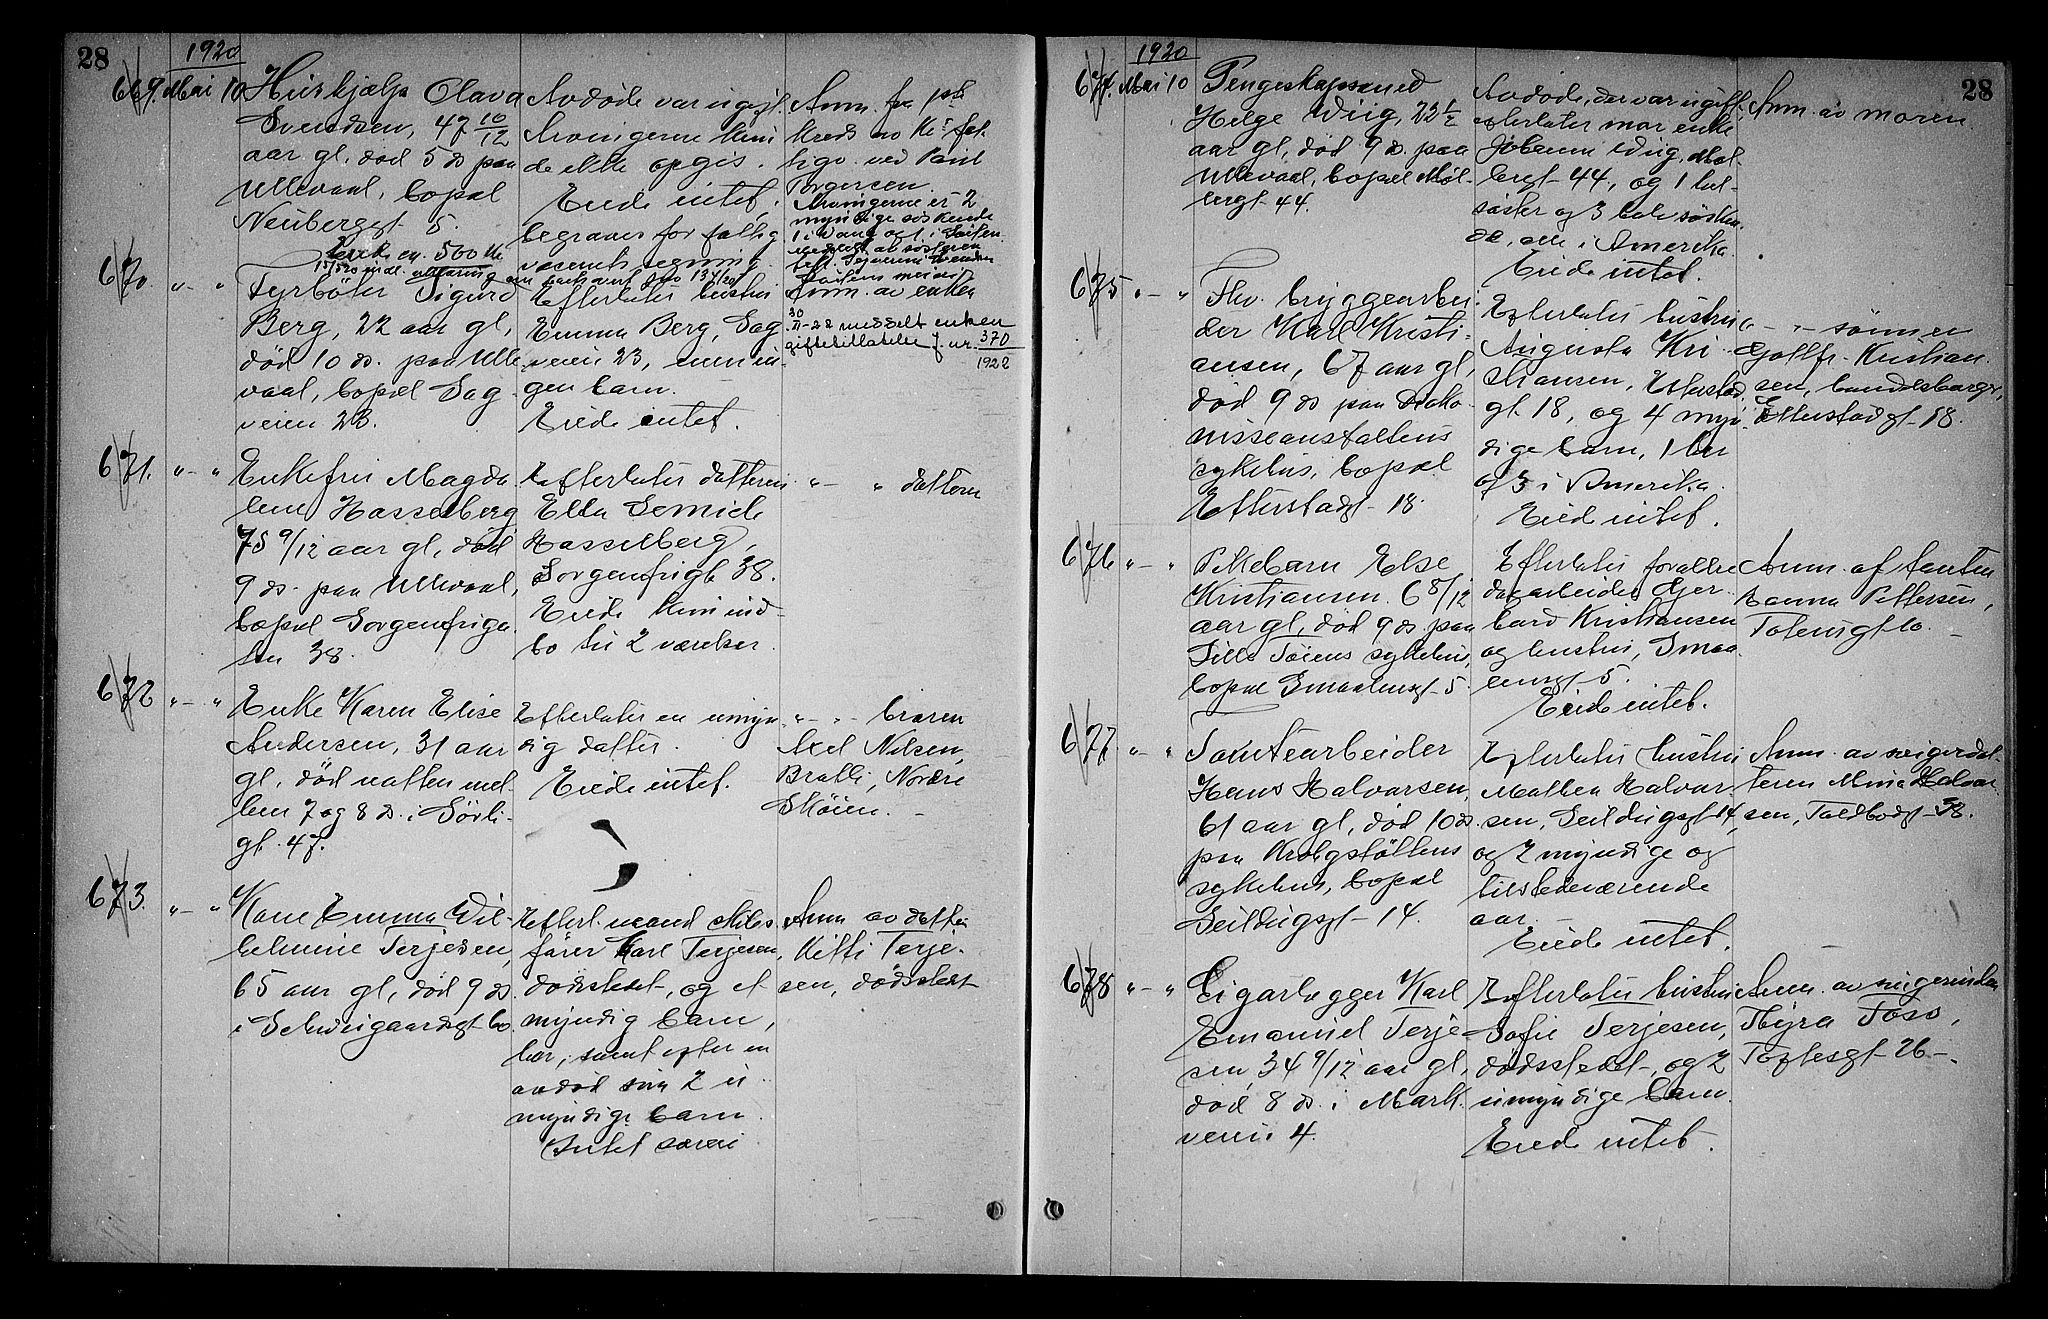 28
1920
669. Mai 10 Hushjælp Olava
Svendsen, 47 10/12
aar gl. død 5 ds paa
Ullevaal, bopæl
Neuberggt 5.
Eiede ca. 500 kr
Avdøde var ugift.
Arvingerne kun
de ikke opgis.
Eiede intet,
begraves for fattig
væsenets regning.
Anm. fra
kreds av
ved Paul
Torgersen.
Arvingerne er 2
myndige søskende
670. " - " Fyrbøter Sigurd
Berg, 22 aar gl,
død 10 ds. paa Ulle
vaal, bopæl Sag
veien 23.
Efterlater hustru
Emma Berg, Sag
veien 23, men in-
gen barn.
Eiede intet.
Anm. av enken
30/II-22 meddelt enken
giftetillatelse j. nr. 370
1922
671. " - " Enkefru Magda
lene Hasselberg
75 9/12 aar gl, død
9 ds. paa Ullevaal,
bopæl Sorgenfriga
ten 38.
Efterlater datteren
Ella
Hasselberg,
Sorgenfrigt 38.
Eiede kun ind-
bo til 2 værelser.
" - " datteren
672 " - " Enke Karen Elise
Andersen, 31 aar
gl, død natten mel
lem 7 og 8 ds. i Sørli
gt. 47.
Efterlater en umyn
dig datter.
Eiede intet.
" - " broren
Axel Nilsen,
Bratli, Nordre
Skøien. -
673. " - " Kone Emma Wil-
helmine Terjesen,
65 aar gl, død 9 ds.
i Schweigaardsgt 60
Efterl. mand
fører Karl Terjesen,
dødsstedet, og et
myndig barn,
her, samt efter en
avdød søn 2 u
myndige barn.
Intet særeie
Anm av datter
Kitti Terje-
sen, dødsstedet
28
1920
674. Mai 10 Pengeskapssmed
Helge Wiig, 22 1/2
aar gl, død 9 ds. paa
Ullevaal, bopæl Møl-
lergt 44.
Avdøde, der var ugift,
efterlater mor enke
Johanne Wiig, Møl-
lergt 44, og 1 hel-
søster og 3 halvsøsken
de, alle i Amerika.
Eiede intet.
Anm. av moren.
675 " - " Fhv. bryggearbei
der Karl Kristi-
ansen, 67 aar gl,
død 9 ds paa Diako
nisseanstaltens
sykehus, bopæl
Etterstadgt 18.
Efterlater hustru
Augusta Kri
stiansen, Etterstad
gt. 18, og 4 myn
dige barn, 1 her
og 3 i Amerika.
Eiede intet.
" - " sønnen
Gottfr. Kristian
sen,
Etterstadgt 18.
676 " - " Pikebarn Else
Kristiansen 6 8/12
aar gl, død 9 ds. paa
Lille Tøiens sykehus,
bopæl Smaalensgt 5.
Efterlater forældre
dagarbeider Gjer
hard Kristiansen
og hustru, Smaa
lensgt 5.
Eiede intet.
Anm. af tanten
Hanna Pettersen,
Totensgt 10. -
677. " - " Tomtearbeider
Hans Halvorsen,
61 aar gl, død 10 ds.
paa Krohgstøttens
sykehus, bopæl
Seildugsgt 14.
Efterlater hustru
Mathea Halvor
sen, Seildugsgt 14,
og 7 myndige og
tilstedeværende
aar. -
Eiede intet.
Anm. av svigerdat-
teren Mina Halvor
sen, Toldbodgt 38.
678 " - " Cigarlægger Karl
Emanuel Terje-
sen, 34 9/12 aar gl,
død 8 ds. i Mark.
veien 4.
Efterlater hustru
Sofie Terjesen,
dødsstedet, og 2
umyndige barn.
Eiede intet.
Anm. av svigerinden
Thyra Foss,
Toftesgt 26 -.